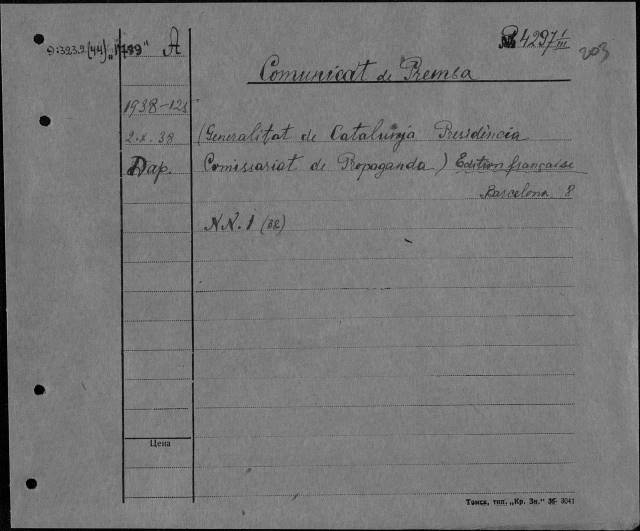 9:323.2(44) „1789" A
№ 4297 I/III
203
Comunicat de Premsa
1938-125
2.X.38 (Generalitat de Catalunya Presidència
Dар. Comissariat de Propaganda) Edition française
Barcelona. 8
NN. 1 (38)
Цена
Томск, тип. „Кр. Зн." 36- 3041